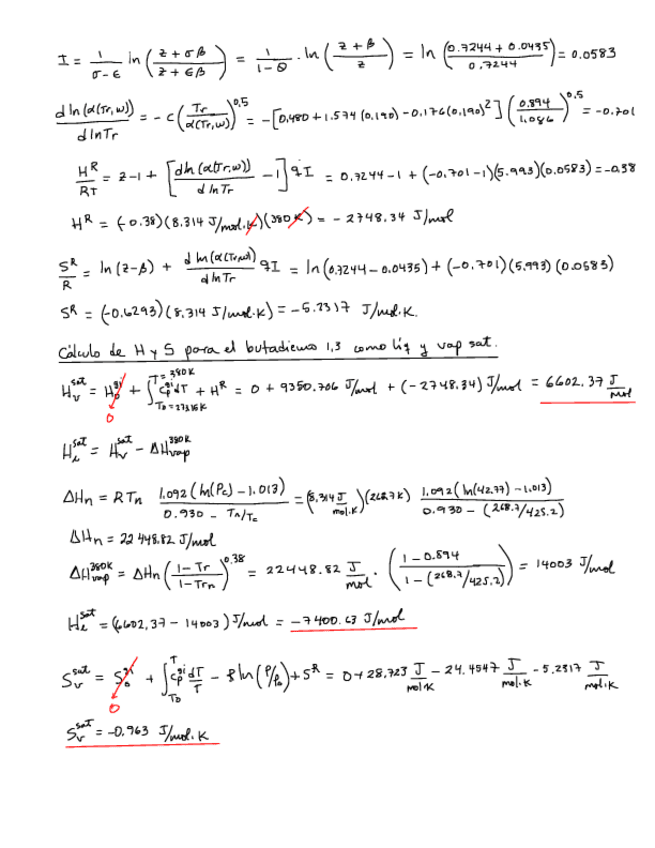 I = 1/(σ-ε) ln((z+σβ)/(z+εβ)) = 1/(1-0) · ln((z+β)/z) = ln((0.7244+0.0435)/0.7244) = 0.0583
d ln(α(Tr,w))/d ln Tr = -c(Tr/α(Tr,w))^0.5 = -[0.480+1.574(0.190)-0.176(0.190)^2](0.894/1.086)^0.5 = -0.701
H^R/RT = z-1+[d ln(α(Tr,w))/d ln Tr - 1]qI = 0.7244-1+(-0.701-1)(5.993)(0.0583) = -0.38
H^R = (-0.38)(8.314 J/mol.K)(380K) = -2748.34 J/mol
S^R/R = ln(z-β) + d ln(α(Tr,w))/d ln Tr qI = ln(0.7244-0.0435)+(-0.701)(5.993)(0.0583)
S^R = (-0.6293)(8.314 J/mol.K) = -5.2317 J/mol.K.
Cálculo de H y S para el butadieno 1,3 como líq y vap sat.
H_v^sat = H_0^gi + ∫_{T0=273.15K}^{T=380K} Cp^gi dT + H^R = 0 + 9350.706 J/mol + (-2748.34) J/mol = 6602.37 J/mol
0
H_L^sat = H_v^sat - ΔH_vap^380K
ΔHn = RTn 1.092(ln(Pc)-1.013)/(0.930 - Tn/Tc) = (8.314 J/mol.K)(268.7K) 1.092(ln(42.77)-1.013)/(0.930-(268.7/425.2))
ΔHn = 22448.82 J/mol
ΔH_vap^380K = ΔHn((1-Tr)/(1-Trn))^0.38 = 22448.82 J/mol · ((1-0.894)/(1-(268.7/425.2))) = 14003 J/mol
H_L^sat = (6602,37-14003) J/mol = -7400.63 J/mol
S_v^sat = S_0^gi + ∫_{T0}^{T} Cp^gi dT/T - R ln(P/P0) + S^R = 0+28.723 J/mol K - 24.4547 J/mol.K - 5.2317 J/mol.K
0
S_v^sat = -0,963 J/mol.K